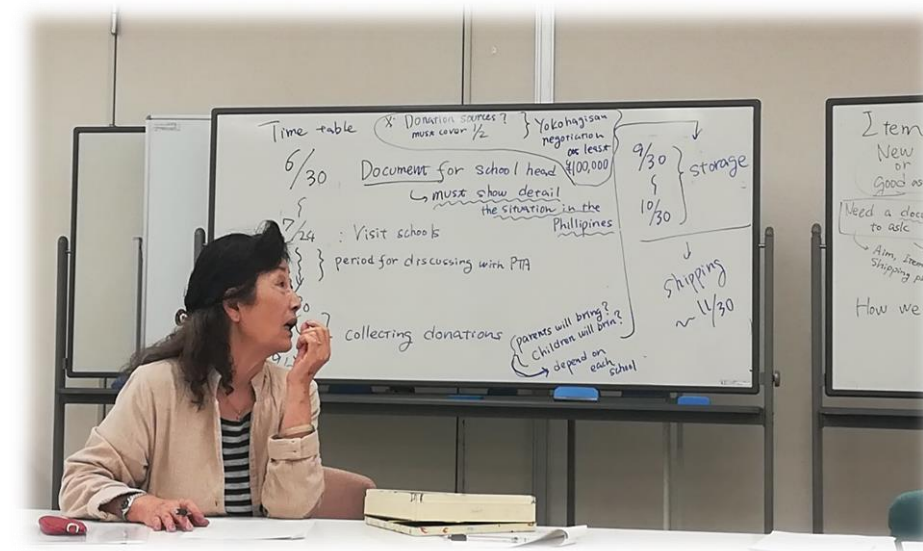 Time table
X. Donation sources?
must cover 1/2
Yokohagisan
negotiation
at least
¥100,000
6/30
Document for school head
must show detail
the situation in the
Phillipines
7/24 : Visit schools
period for discussing with PTA
collecting donations
parents will bring?
Children will brin?
depend on
each
school
9/30
10/30
storage
Shipping
~ 11/30
Item
New
or
Good
Need a doc
to ask
Aim, Item
Shipping p
How we